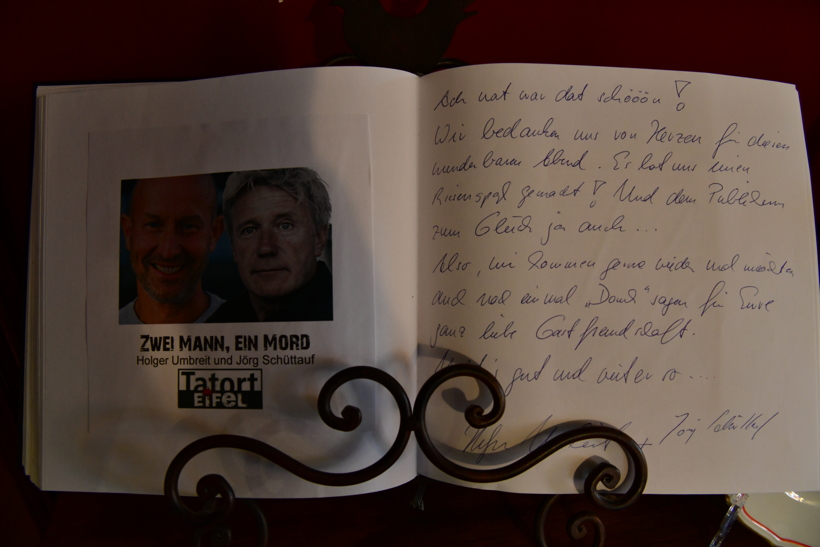 ZWEI MANN, EIN MORD
Holger Umbreit und Jörg Schüttauf
Tatort
EIFEL
Ach wat war dat schööön!
Wir bedanken uns von Herzen für diesen
wunderbaren Abend. Es hat uns einen
Riesenspaß gemacht! Und dem Publikum
zum Glück ja auch...
Also, wir kommen gerne wieder und möchten
auch noch einmal „Dank" sagen für Eure
ganz liebe Gastfreundschaft.
gut und weiter so ...
Holger Umbreit + Jörg Schüttauf